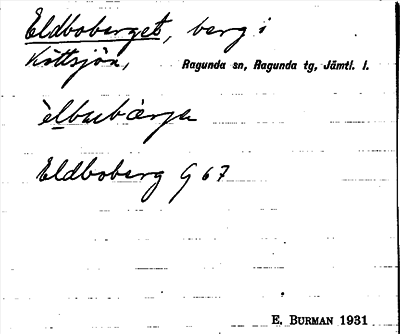 Eldboberget, berg i
Köttsjön, Ragunda sn, Ragunda tg, Jämtl. l.
Eldboberg G 67
E. BURMAN 1931